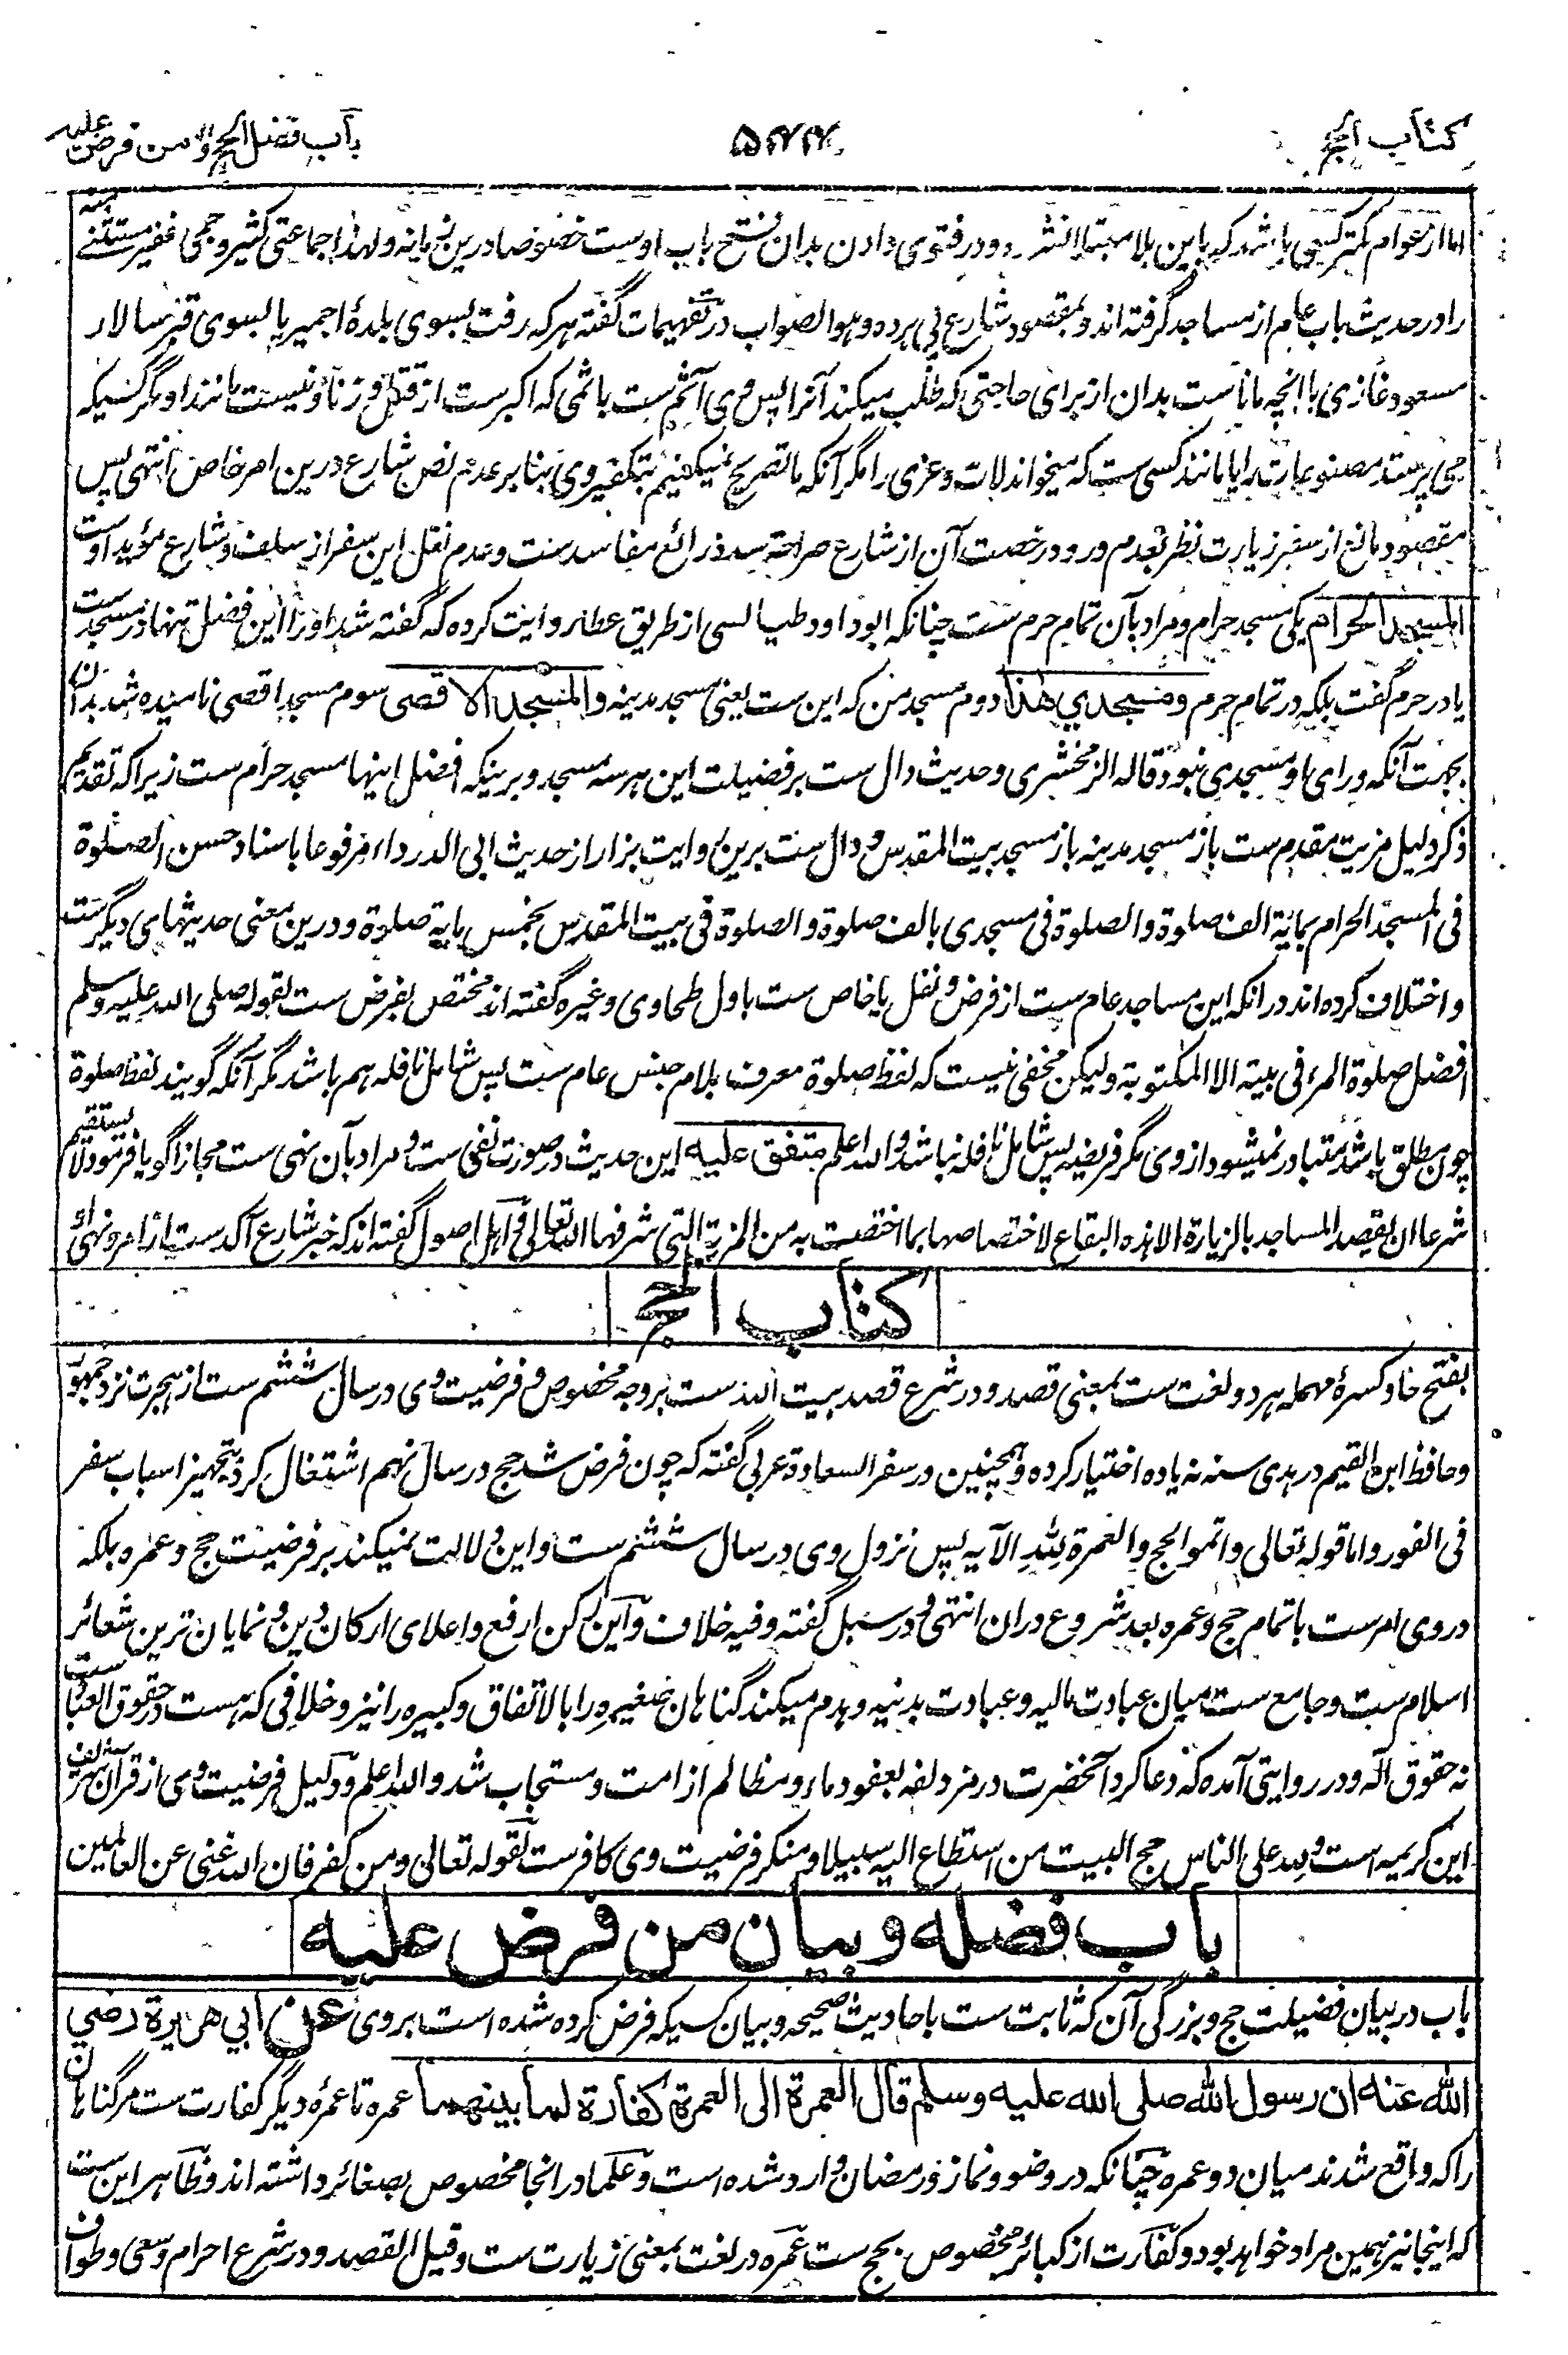 کتاب الحج
۵۴۴
باب فضل الحج و من فرض علیہ
اما از عوام کمتر کسی باشد کہ باین بلا مبتلا نشود و در فتوی دادن بدان فتح باب اوست خصوصا درین زمانہ و لہذا جماعتی کثیر و جمی غفیر مستثنے منہ
را در حدیث باب عام از مساجد گرفتہ اند و بمقصود شارع پی بردہ و ہو الصواب در تفہیمات گفتہ ہر کہ رفت بسوی بلدۂ اجمیر یا بسوی قبر سالار
مسعود غازی یا انچہ ماناست بدان از برای حاجتی کہ طلب میکند آنرا پس وی آثم ست باثمی کہ اکبر ست از قتل و زنا و نیست مانند او مگر کسیکہ
می پرستد مصنوعات را یا مانند کسی ست کہ میخواند لات و عزی را مگر آنکہ ما تصریح نمیکنیم بتکفیر وی بنا بر عدم نص شارع درین امر خاص انتہی پس
مقصود مانع از سفر زیارت نظر بعدم ورود رخصت آن از شارع صراحۃ سد ذرائع مفاسد ست و عدم نقل این سفر از سلف و شارع مؤید اوست
المسجد الحرام یکی مسجد حرام و مراد بآن تمام حرم ست چنانکہ ابو داود طیالسی از طریق عطا روایت کردہ کہ گفتہ شد او را این فضل تنہا در مسجد ست
یا در حرم گفت بلکہ در تمام حرم و مسجدي هذا دوم مسجد من کہ این ست یعنی مسجد مدینہ و المسجد الاقصی سوم مسجد اقصی نامیدہ شد بدان
بجہت آنکہ ورای او مسجدی نبود قالہ الزمخشری و حدیث دال ست بر فضیلت این ہر سہ مسجد و برینکہ افضل اینہا مسجد حرام ست زیرا کہ تقدیم
ذکر دلیل مزیت مقدم ست باز مسجد مدینہ باز مسجد بیت المقدس و دال ست برین روایت بزار از حدیث ابی الدرداء مرفوعا باسناد حسن الصلوة
فی المسجد الحرام بمایۃ الف صلوة والصلوة فی مسجدی بالف صلوة والصلوة فی بیت المقدس بخمس مایۃ صلوة و درین معنی حدیثہای دیگر ست
و اختلاف کردہ اند در آنکہ این مساجد عام ست از فرض و نفل یا خاص ست باول طحاوی و غیرہ گفتہ اند مختص بفرض ست لقولہ صلی اللہ علیہ وسلم
افضل صلوة المرء فی بیتہ الا المکتوبۃ و لیکن مخفی نیست کہ لفظ صلوة معرف بلام جنس عام ست پس شامل نافلہ ہم باشد مگر آنکہ گویند لفظ صلوة
چون مطلق باشد متبادر نمیشود از وی مگر فریضہ پس شامل نافلہ نباشد واللہ اعلم متفق علیہ این حدیث در صورت نفی ست و مراد بآن نہی ست مجازا گویا فرمود لا یستقیم
شرعا ان یقصد المساجد بالزیارة الا ہذہ البقاع لاختصاصہا بما اختصت بہ من المزیۃ التی شرفہا اللہ تعالی و اہل اصول گفتہ اند کہ خبر شارع آکد ست از امر و نہی او
کتاب الحج
بفتح حا و کسرۂ مہملہ ہر دو لغت ست بمعنی قصد و در شرع قصد بیت اللہ ست بر وجہ مخصوص و فرضیت وی در سال ششم ست از ہجرت نزد جمہور
و حافظ ابن القیم در ہدی سنہ نہ یا دہ اختیار کردہ و ہمچنین در سفر السعادة عربی گفتہ کہ چون فرض شد حج در سال نہم اشتغال کرد بتجہیز اسباب سفر
فی الفور و اما قولہ تعالی واتموا الحج والعمرة للہ الآیہ پس نزول وی در سال ششم ست و این دلالت نمیکند بر فرضیت حج و عمرہ بلکہ
در وی امر ست باتمام حج و عمرہ بعد شروع دران انتہی و در سبل گفتہ و فیہ خلاف و این رکن ارفع و اعلای ارکان دین و نمایان ترین شعائر
اسلام ست و جامع ست میان عبادت مالیہ و عبادت بدنیہ و ہدم میکند گناہان صغیرہ را بالاتفاق و کبیرہ را نیز و خلافی کہ ہست در حقوق العباد ست
نہ حقوق الہ و در روایتی آمدہ کہ دعا کرد آنحضرت در مزدلفہ بعفو دماء و مظالم از امت و مستجاب شد واللہ اعلم و دلیل فرضیت وی از قرآن شریف
این کریمہ است و للہ علی الناس حج البیت من استطاع الیہ سبیلا و منکر فرضیت وی کافر ست لقولہ تعالی و من کفر فان اللہ غنی عن العالمین
باب فضله و بیان من فرض علیه
باب در بیان فضیلت حج و بزرگی آن کہ ثابت ست باحادیث صحیحہ و بیان کسیکہ فرض کردہ شدہ است بر وی عن ابي هریرة رضي
الله عنه ان رسول الله صلی الله علیه وسلم قال العمرة الی العمرة کفارة لما بینهما عمرہ تا عمرۂ دیگر کفارت ست مر گناہان
را کہ واقع شدند میان دو عمرہ چنانکہ در وضو و نماز و رمضان وارد شدہ است و علما در انجا مخصوص بصغائر داشتہ اند و ظاہر این ست
کہ اینجا نیز ہمین مراد خواہد بود و کفارت از کبائر مخصوص بحج ست عمرہ در لغت بمعنی زیارت ست و قیل القصد و در شرع احرام و سعی و طواف